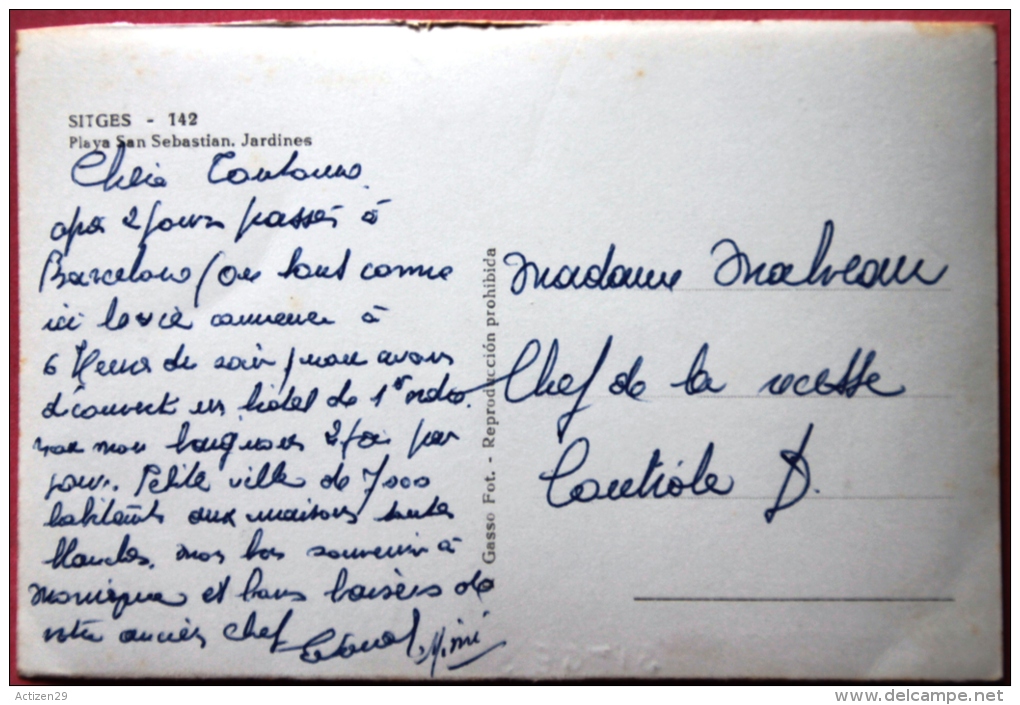 SITGES - 142
Playa San Sebastian. Jardines
après 2 jours passés à
Barcelone (où tout comme
ici la vie commence à
6 Heures du soir) nous avons
découvert un hôtel de 1er ordre.
nous nous baignons 2 fois par
jour. Petite ville de 7000
habitants aux maisons toutes
blanches. mon bon souvenir à
Monique et bons baisers de
votre ancien chef
Mimi
Gasso Fot. - Reproducción prohibida
Madame Malveau
Chef de la recette
Contrôle D.
Actizen29
http://www.delcampe.net